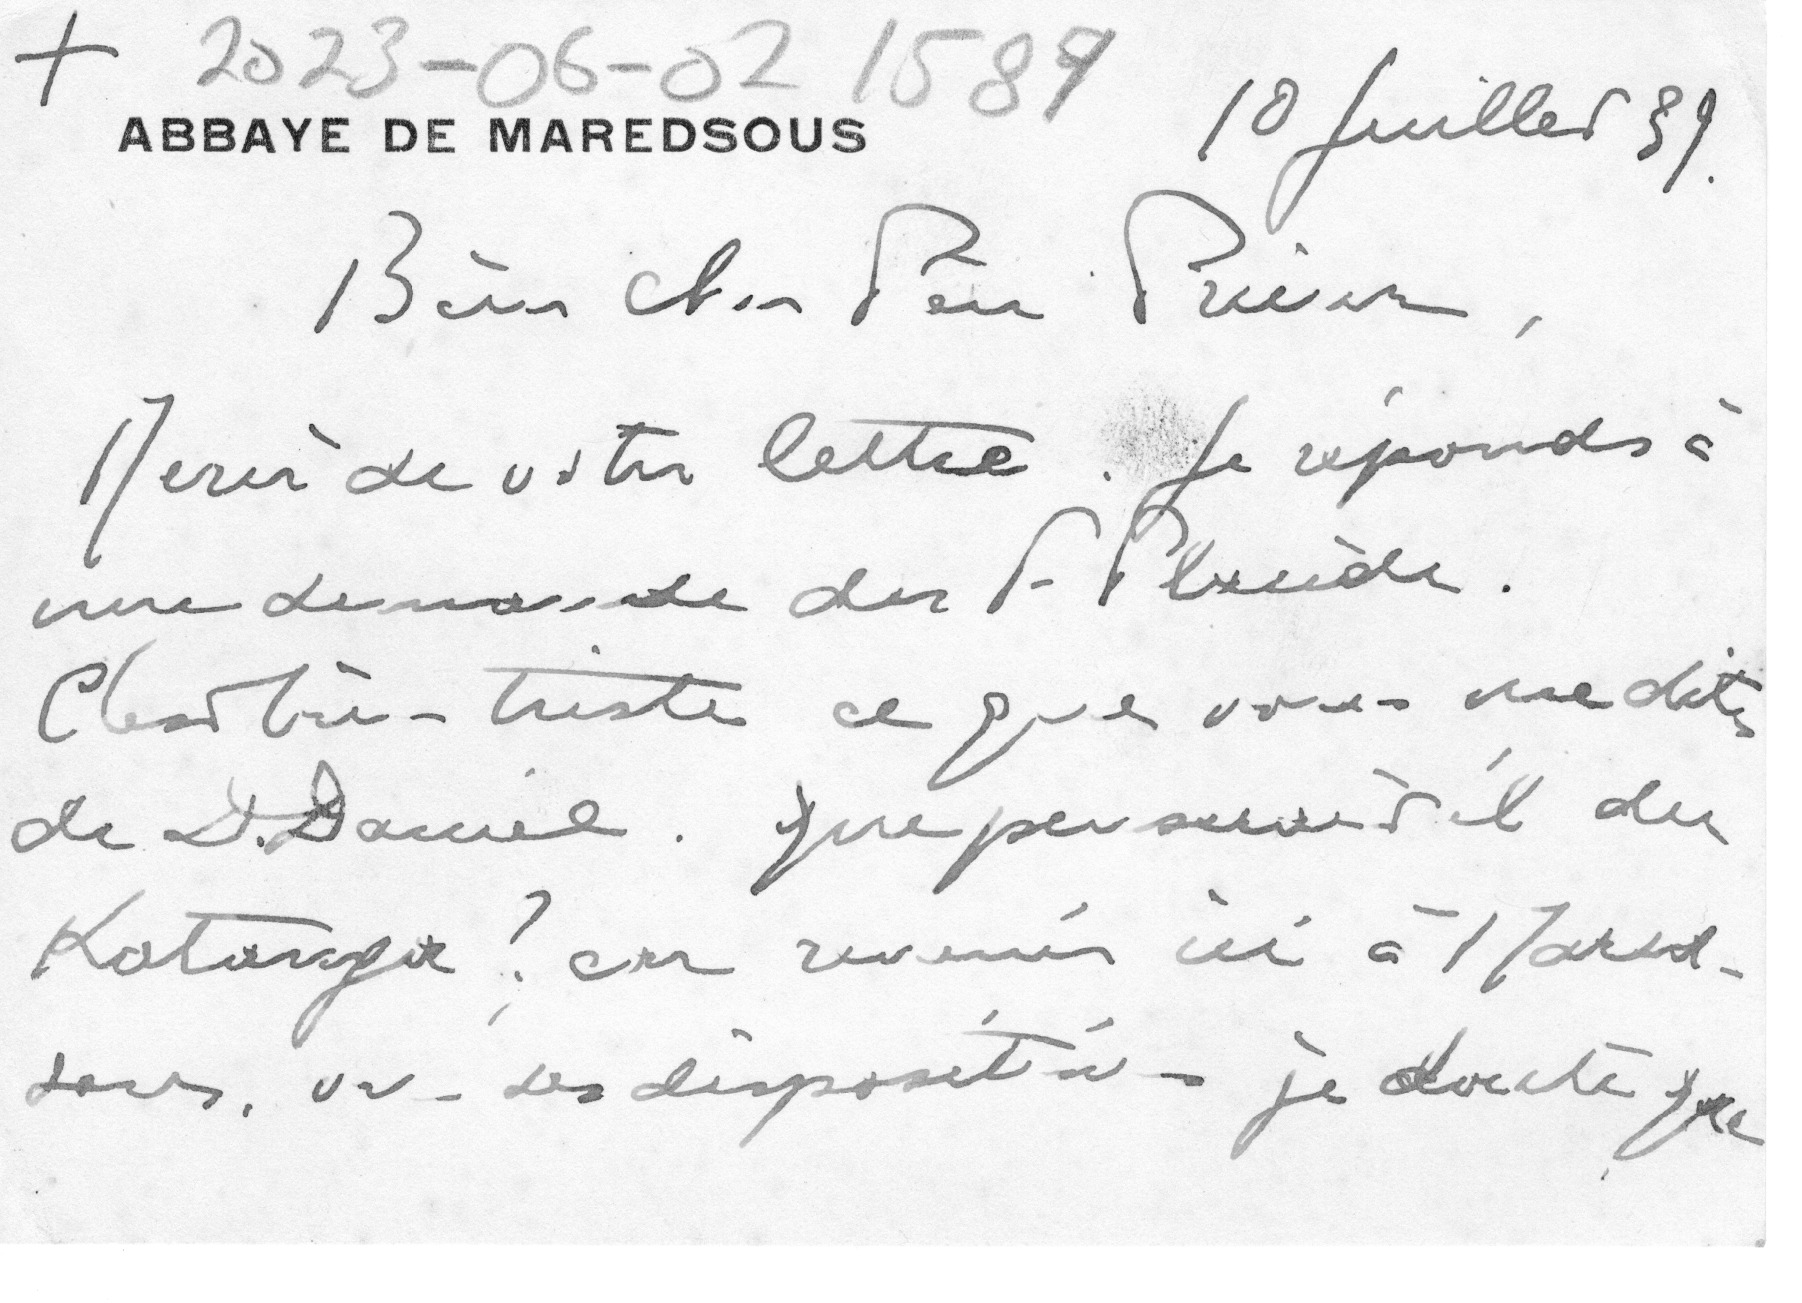 + 2023-06-02 1589
ABBAYE DE MAREDSOUS
10 Juillet 39.
Bien cher Père Prieur,
Merci de votre lettre. Je réponds à
une demande du P. Placide.
C'est bien triste ce que vous me dites
de D. Daniel. Que penserait il du
Katanga? car revenir ici à Mared-
sous, vu ses dispositions je doute que